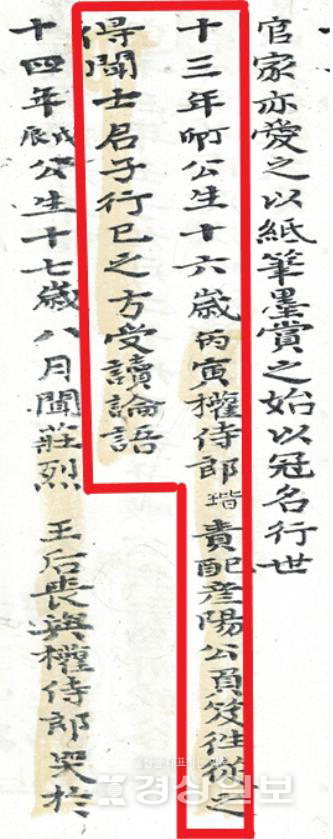 官家亦愛之以紙筆墨賞之始以冠名行世
十三年丁卯公生十六歲丙寅權侍郎瑎責配彦陽公負笈往從之
得聞士君子行己之方受讀論語
十四年戊辰公生十七歲八月聞莊烈 王后喪與權侍郎哭於
경상일보